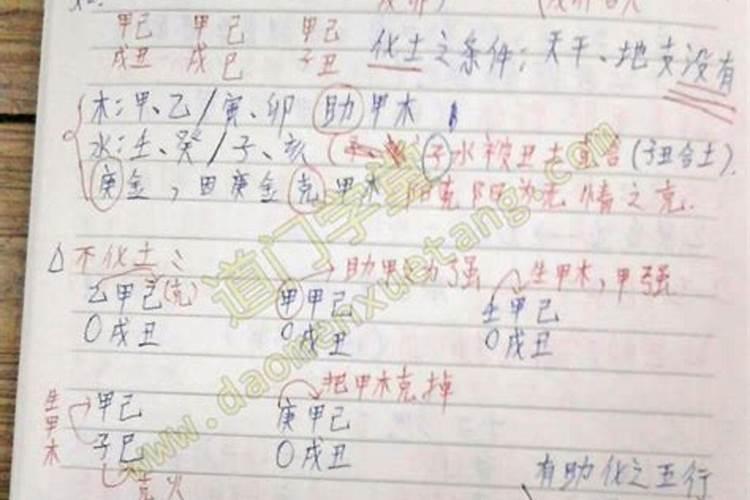 甲己 甲己 甲己
戌丑 戌巳 子丑
化土之条件：天干、地支没有
木：甲、乙/寅、卯 助甲木
水：壬、癸/子、亥 子水被丑土 合(子丑合土).
庚金，因庚金克甲木 阳克阳为无情之克.
△不化土：
→助甲更为了强
生甲木，甲强
乙甲己(克) 甲甲己 壬甲己
〇戌丑 〇戌丑 〇戌丑
→把甲木克掉
生甲木 →甲己 庚甲己
子巳 〇戌丑
克火
有助化之五行
道门学堂
www.daomenxuetang.com